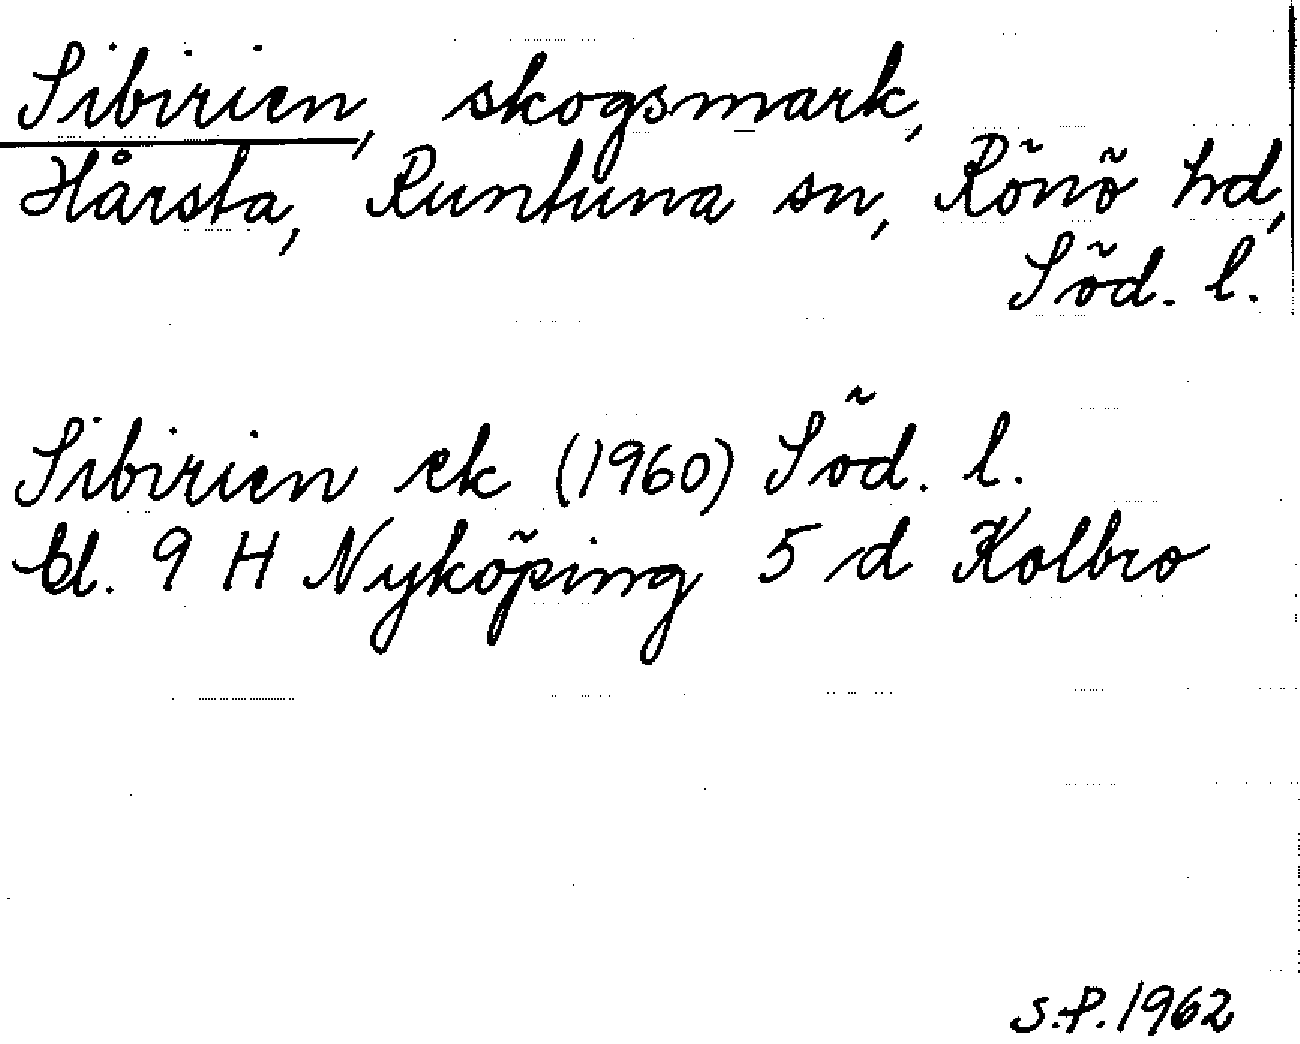 Sibirien, skogsmark,
Hårsta, Runtuna sn, Rönö hd,
Söd. l.
Sibirien ek (1960) Söd. l.
bl. 9 H Nyköping 5 d Kolbro
S.P. 1962